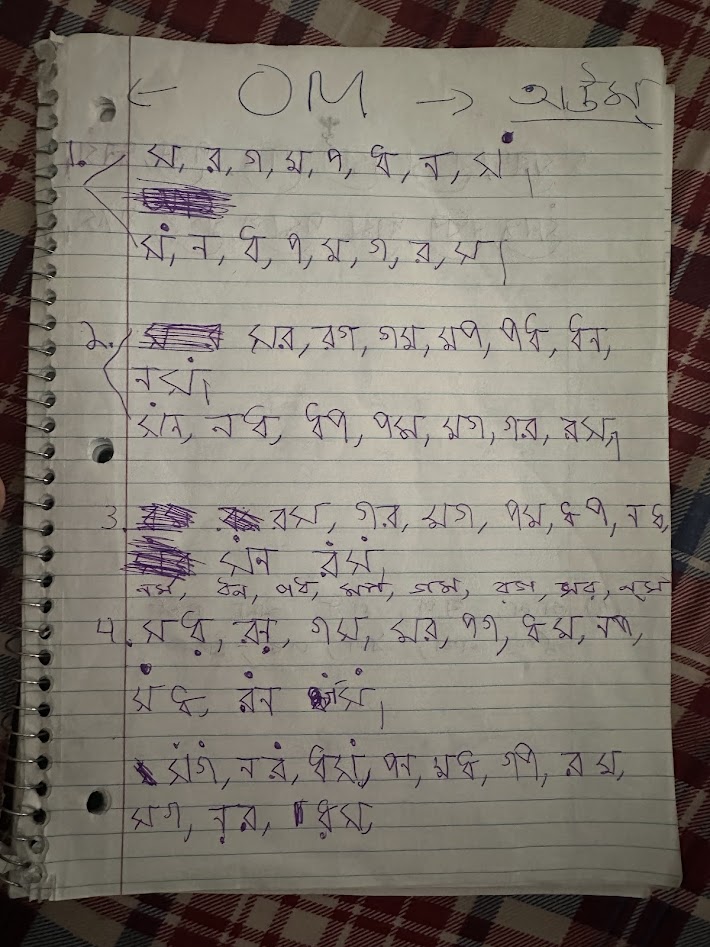 ← OM → অউম্
1. স, র, গ, ম, প, ধ, ন, র্সা
র্স, ন, ধ, প, ম, গ, র, স।
২. সর, রগ, গম, মপ, পধ, ধন,
নর্স।
র্সন, নধ, ধপ, পম, মগ, গর, রস।
3. রস, গর, মগ, পম, ধপ, নধ,
র্সন র্রর্স,
নর্স, ধন, পধ, মপ, গম, রগ, সর, ন্স
4. সধ্, রন্, গস, মর, পগ, ধম, নপ,
র্সধ, র্রন র্স।
র্সর্গ, নর্র, ধর্স, পন, মধ, গপ, রম,
সগ, ন্র, ধ্স,